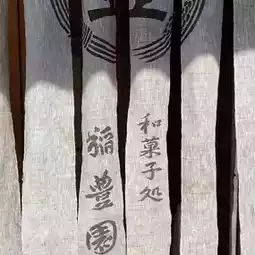 和菓子処
稲豊園